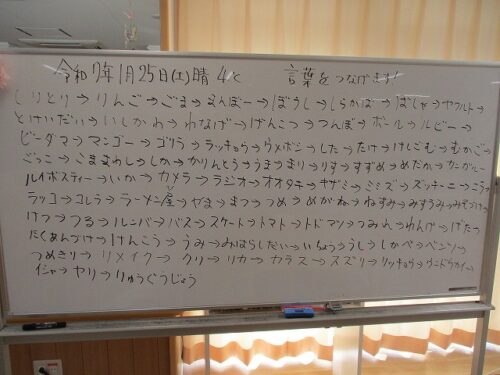 令和7年1月25日(土)晴 4℃ 言葉をつなげます!
しりとり→りんご→ごま→まんぼー→ぼうし→しらかば→ばしゃ→ヤクルト→
とけいだい→いしかわ→わなげ→げんこつ→つんぼ→ボール→ルビー→
ビーダマ→マンゴー→ゴリラ→ラッキョウ→ウメボシ→した→たけ→けしごむ→むかご→
ごっこ→こままわし→しか→かりんとう→うま→まり→りす→すずめ→めだか→カンガルー
ルイボスティー→いか→カメラ→ラジオ→オオタキ→キザミ→ミミズ→ズッキーニ→
ラッコ→コレラ→ラーメン屋→やま→まつ→つめ→めがね→ねずみ→みずうみ→
けつ→つる→ルンバ→バス→スケート→トマト→トドマツ→つみれ→れんげ→げた→
たくあんづけ→けんこう→うみ→みはらしだい→いちょう→うし→しかべ→ベンツ→
つめきり→リメイク→クリ→リカ→カラス→スズリ→リッキョウ→ウンドウカイ→
イシャ→ヤリ→りゅうぐうじょう